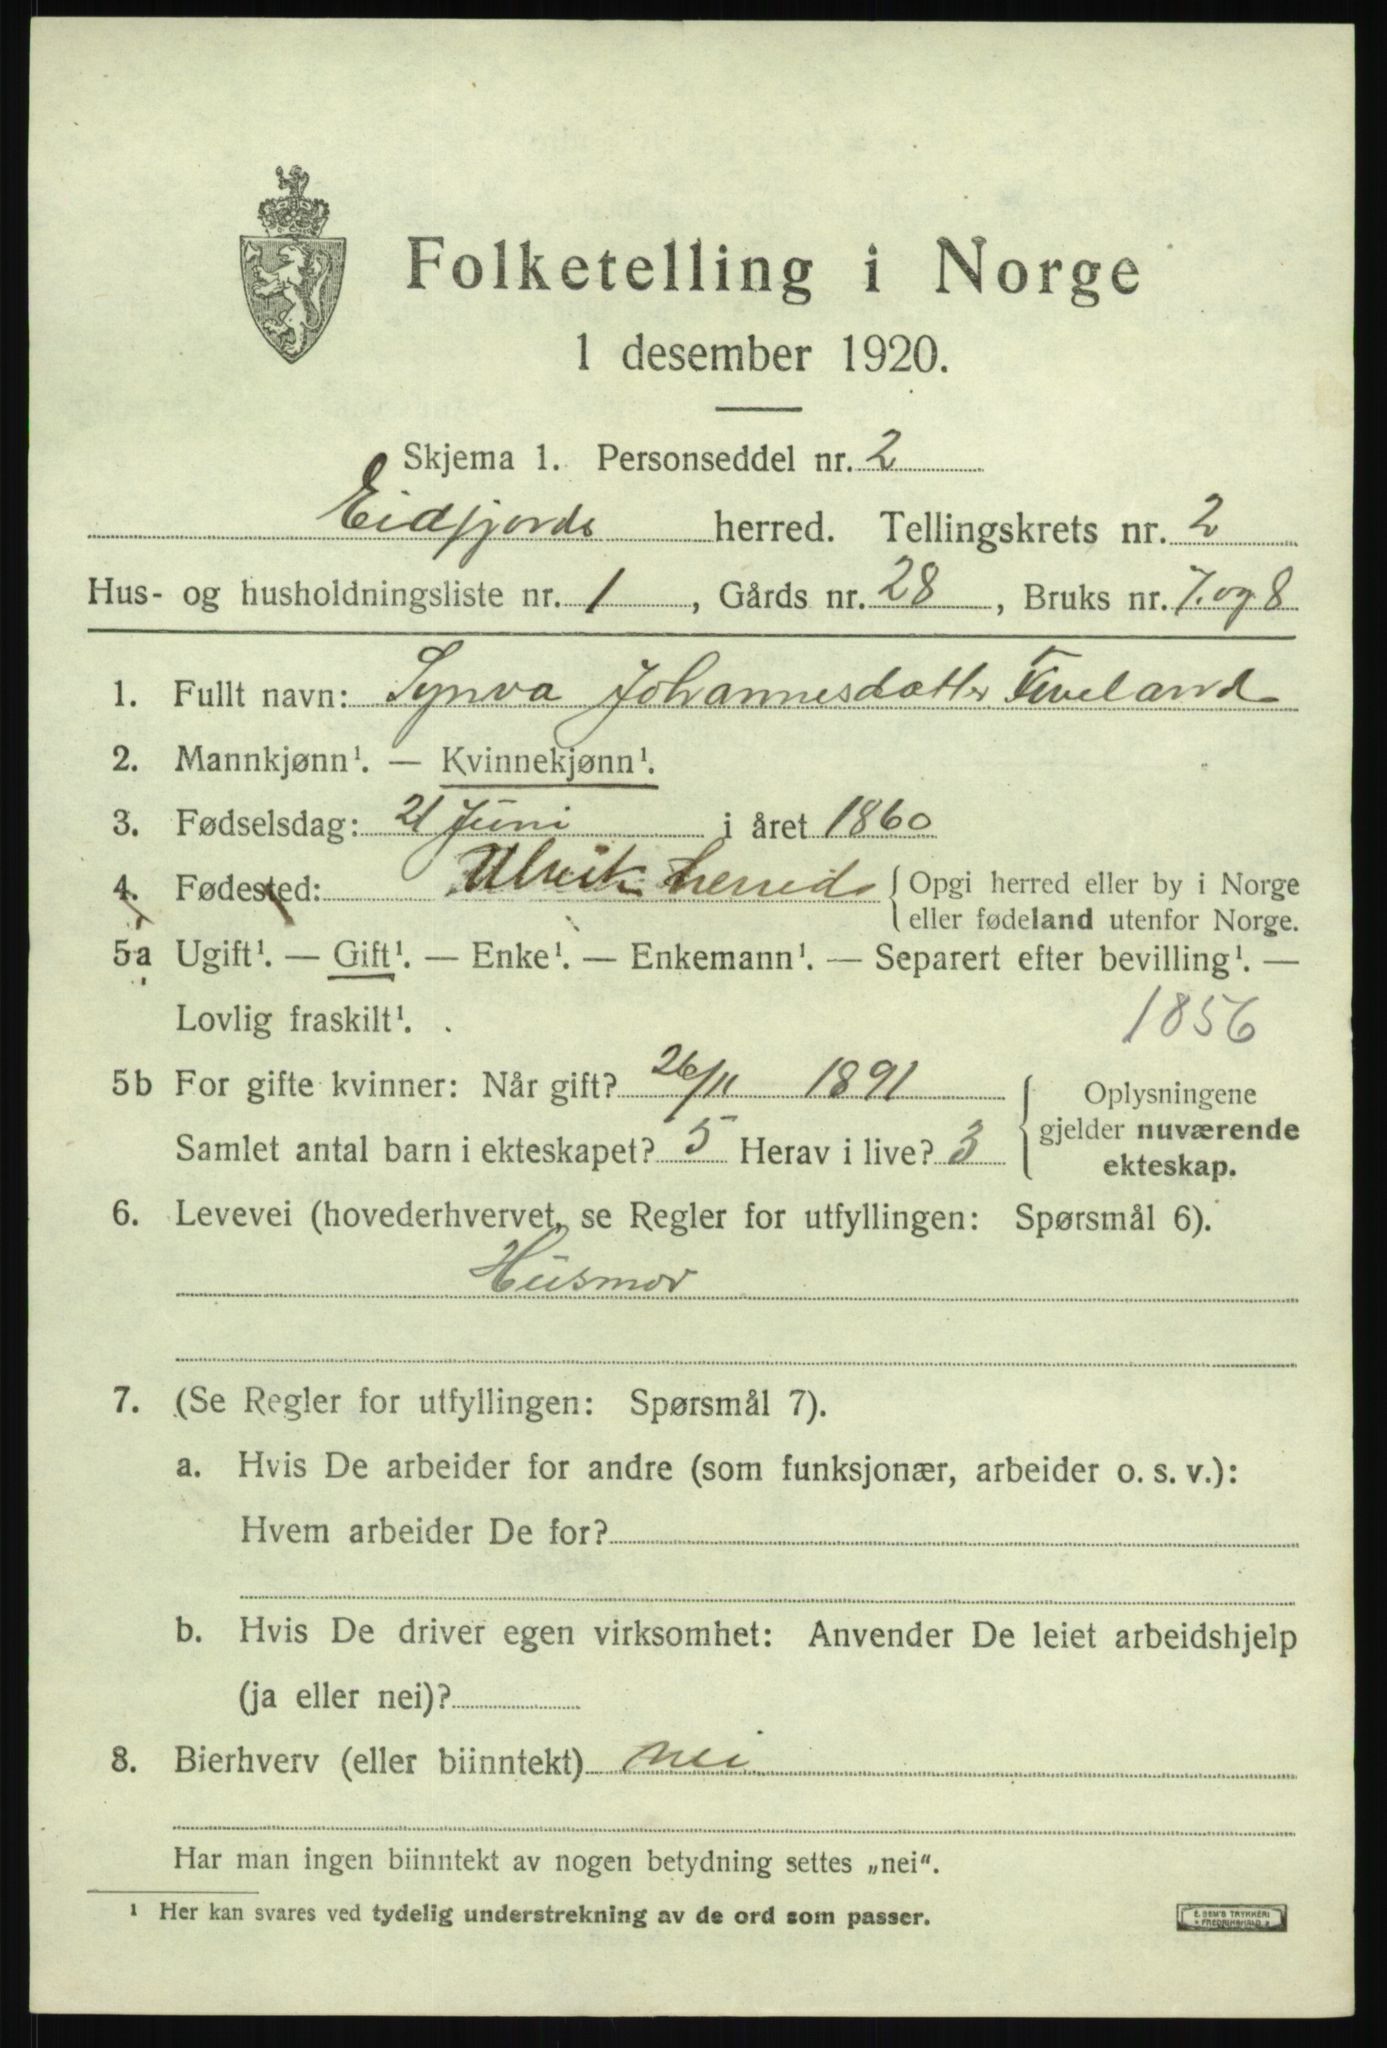 Folketelling i Norge
1 desember 1920.
Skjema 1. Personseddel nr. 2
Eidfjords herred. Tellingskrets nr. 2
Hus- og husholdningsliste nr. 1, Gårds nr. 28, Bruks nr. 7. og 8
1. Fullt navn: Synva Johannesdatter Tveeland
2. Mannkjønn¹. — Kvinnekjønn¹.
3. Fødselsdag: 21 Juni i året 1860
4. Fødested: Ulvik herred { Opgi herred eller by i Norge
eller fødeland utenfor Norge.
5a Ugift¹. — Gift¹. — Enke¹. — Enkemann¹. — Separert efter bevilling¹. —
Lovlig fraskilt¹. 1856
5b For gifte kvinner: Når gift? 26/11 1891
Samlet antal barn i ekteskapet? 5 Herav i live? 3
{ Oplysningene
gjelder nuværende
ekteskap.
6. Levevei (hovederhvervet, se Regler for utfyllingen: Spørsmål 6).
Husmor
7. (Se Regler for utfyllingen: Spørsmål 7).
a. Hvis De arbeider for andre (som funksjonær, arbeider o. s. v.):
Hvem arbeider De for?
b. Hvis De driver egen virksomhet: Anvender De leiet arbeidshjelp
(ja eller nei)?
8. Bierhverv (eller biinntekt) nei
Har man ingen biinntekt av nogen betydning settes „nei“.
¹ Her kan svares ved tydelig understrekning av de ord som passer.
E. SEM'S TRYKKERI
FREDRIKSHALD